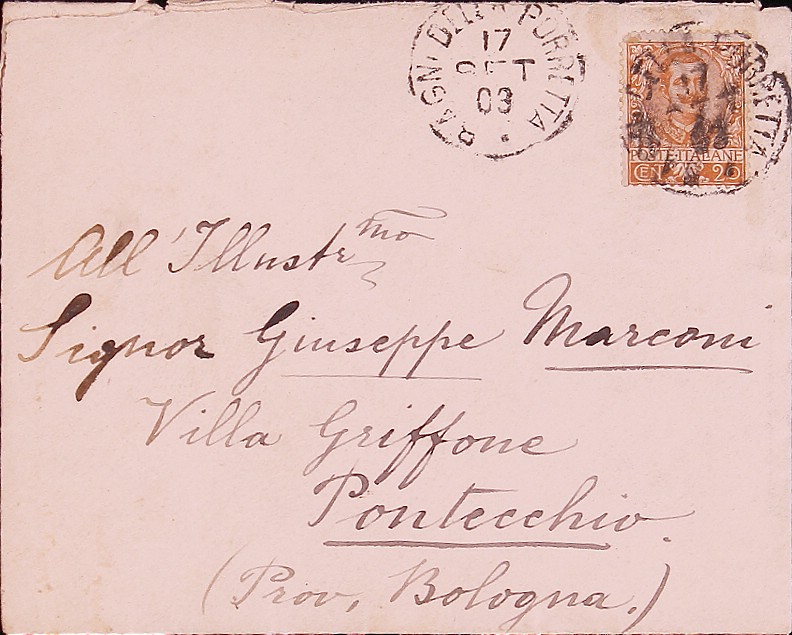 BAGNI DELLA PORRETTA
17
SET
03
POSTE ITALANE
CEN 20
All'Illustrmo
Signor Giuseppe Marconi
Villa Griffone
Pontecchio.
(Prov. Bologna.)